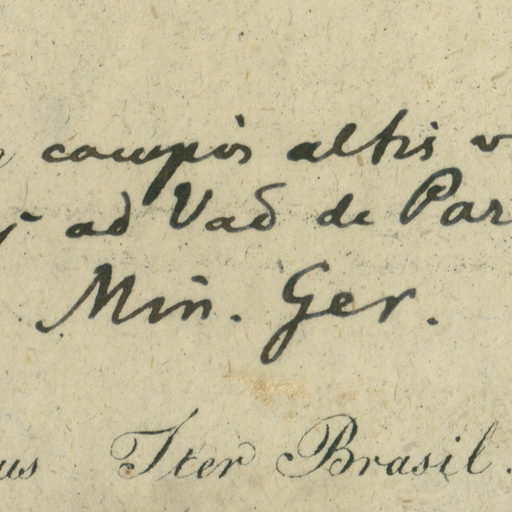 campis altis
ad Vad de Par
Min. Ger.
us Iter Brasil.